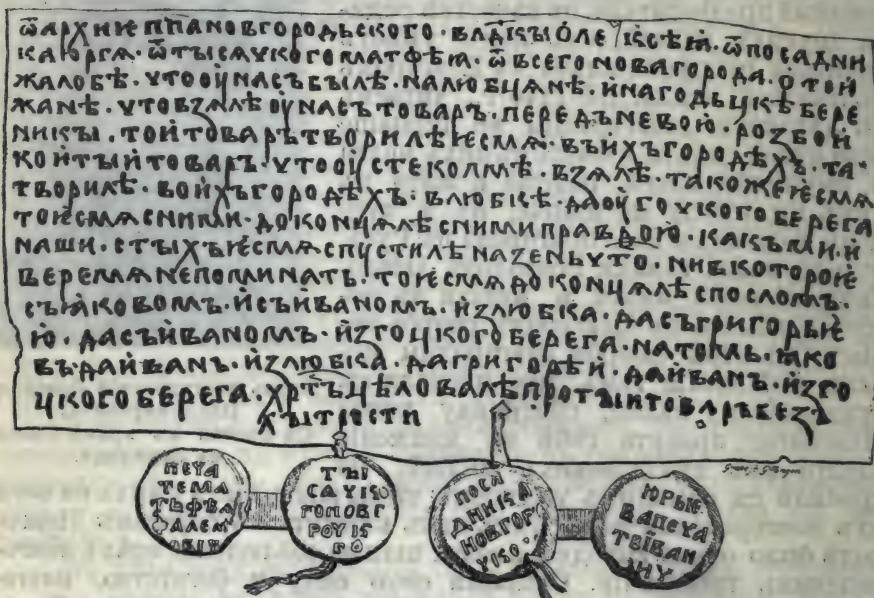 ѿ архиеппа новгородьского · влдкы ѻле ксѣꙗ · ѿ посадни
ка юргꙗ · ѿ тысѧцкого матфѣꙗ · ѿ всего новагорода · о той
жалобѣ · что оу насъ былѣ · на любцѧнѣ · и на годьцкѣ бере
жанѣ · что взѧлѣ оу насъ товаръ · передъ невою · розбой
никы · той товаръ творилѣ ѥсмѧ · въ ихъ городѣхъ · та
кой тый товаръ · что оу стеколмѣ · взѧлѣ · такоже ѥсмѧ
творилѣ · во ихъ городѣхъ · в любкѣ · да оу гоцкого берега
то ѥсмѧ с ними · доконцѧлѣ с ними правдою · какъ ми · и
наши · стыхъ ѥсмѧ спустилѣ на zень что · ни в которої
веремѧ не поминать · то ѥсмѧ доконцѧлѣ с посломъ ·
съ ꙗковомъ · и съ иваномъ · иz любка · да съ григорьѥ
ю · да съ иваномъ · иz гоцкого берега · на томь · ꙗко
въ да иванъ · иz любка · да григорѣй · да иванъ · иz го
цкого берега · хртъ цѣловалѣ про тыи товаръ беz
хытрости
печа
те ма
тьфѣꙗ
тыі
сѧчко
го новг
роуіко
го
поса
дника
новгоро
чіко ·
юрьѥ
ва печа
ть їван